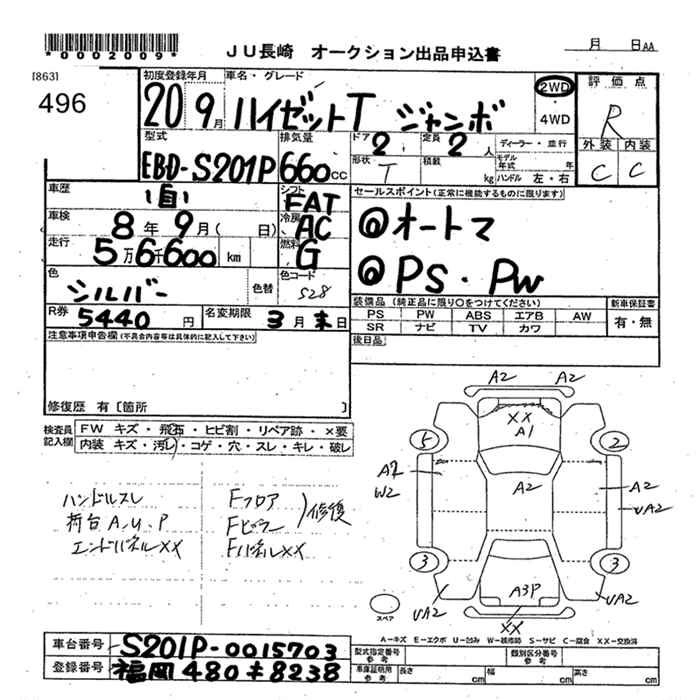 *0002009*
JU長崎 オークション出品申込書
月 日AA
[863]
496
初度登録年月 車名・グレード
20 9月 ハイゼットT ジャンボ
2WD
・
4WD
評価点
R
外装 内装
C C
型式 排気量 ドア 定員
EBD-S201P 660cc 2 2人
形状 積載
T kg
ディーラー・並行
モデル年式 年
ハンドル 左・右
車歴 シフト
自 FAT
車検 冷房
8年9月( 日) AC
走行 燃料
5万6千600 km G
色 色替 色コード
シルバー S28
R券 5440円 名変期限 3月末日
セールスポイント(正常に機能するものに限ります)
◎オートマ
◎PS・PW
装備品 (純正品に限り○をつけてください) 新車保証書
PS PW ABS エアB AW 有・無
SR ナビ TV カワ
後日品
注意事項申告欄(不具合内容等は具体的に記入して下さい)
修復歴 有〔箇所 〕
検査員記入欄
FW キズ・飛石・ヒビ割・リペア跡・×要
内装 キズ・汚レ・コゲ・穴・スレ・キレ・破レ
ハンドルスレ
荷台A.U.P
エンドパネルXX
Fフロア
Fピラー
FパネルXX
修復
A2 A2
XX
A1
5 2
A2
W2
A2
A2
UA2
3 3
UA2
A3P
UA2
XX
スペア
A-キズ E-エクボ U-凹み W-補修跡 S-サビ C-腐食 XX-交換済
車台番号 S201P-0015703
登録番号 福岡480キ8238
型式指定番号 参考 類別区分番号 参考
車庫証明用 参考 長さ cm 幅 cm 高さ cm